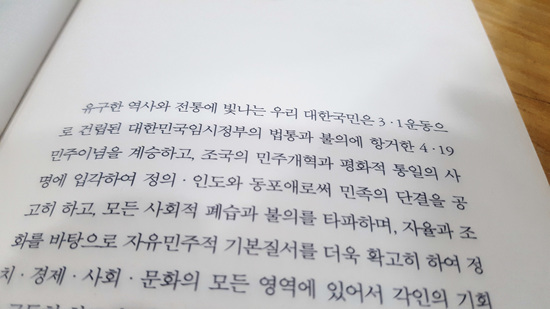 유구한 역사와 전통에 빛나는 우리 대한국민은 3·1운동으
로 건립된 대한민국임시정부의 법통과 불의에 항거한 4·19
민주이념을 계승하고, 조국의 민주개혁과 평화적 통일의 사
명에 입각하여 정의·인도와 동포애로써 민족의 단결을 공
고히 하고, 모든 사회적 폐습과 불의를 타파하며, 자율과 조
화를 바탕으로 자유민주적 기본질서를 더욱 확고히 하여 정
치·경제·사회·문화의 모든 영역에 있어서 각인의 기회